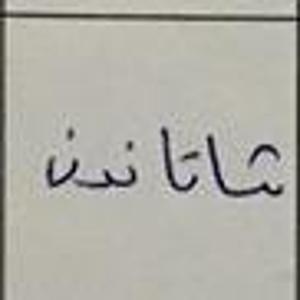 شاتاندن